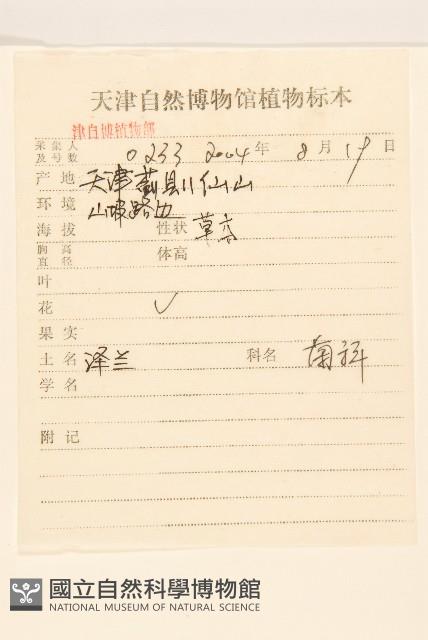 天津自然博物馆植物标本
津自博植物部
采集人及号数 0233 2004年 8月19日
产地 天津蓟县八仙山
环境 山坡路边
海拔 性状 草本
胸高直径 体高
叶
花 ✓
果实
土名 泽兰 科名 菊科
学名
附记
國立自然科學博物館
NATIONAL MUSEUM OF NATURAL SCIENCE